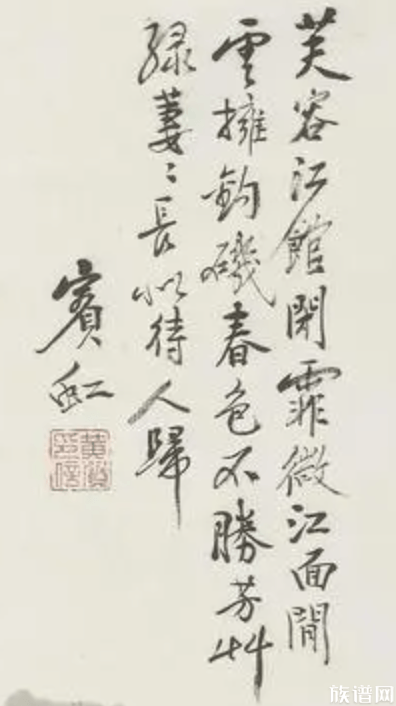 芙容江館閉霏微江面閒
雲擁釣磯春色不勝芳艸
緑萋〻長似待人歸
賓虹
黃質
印信
族谱网